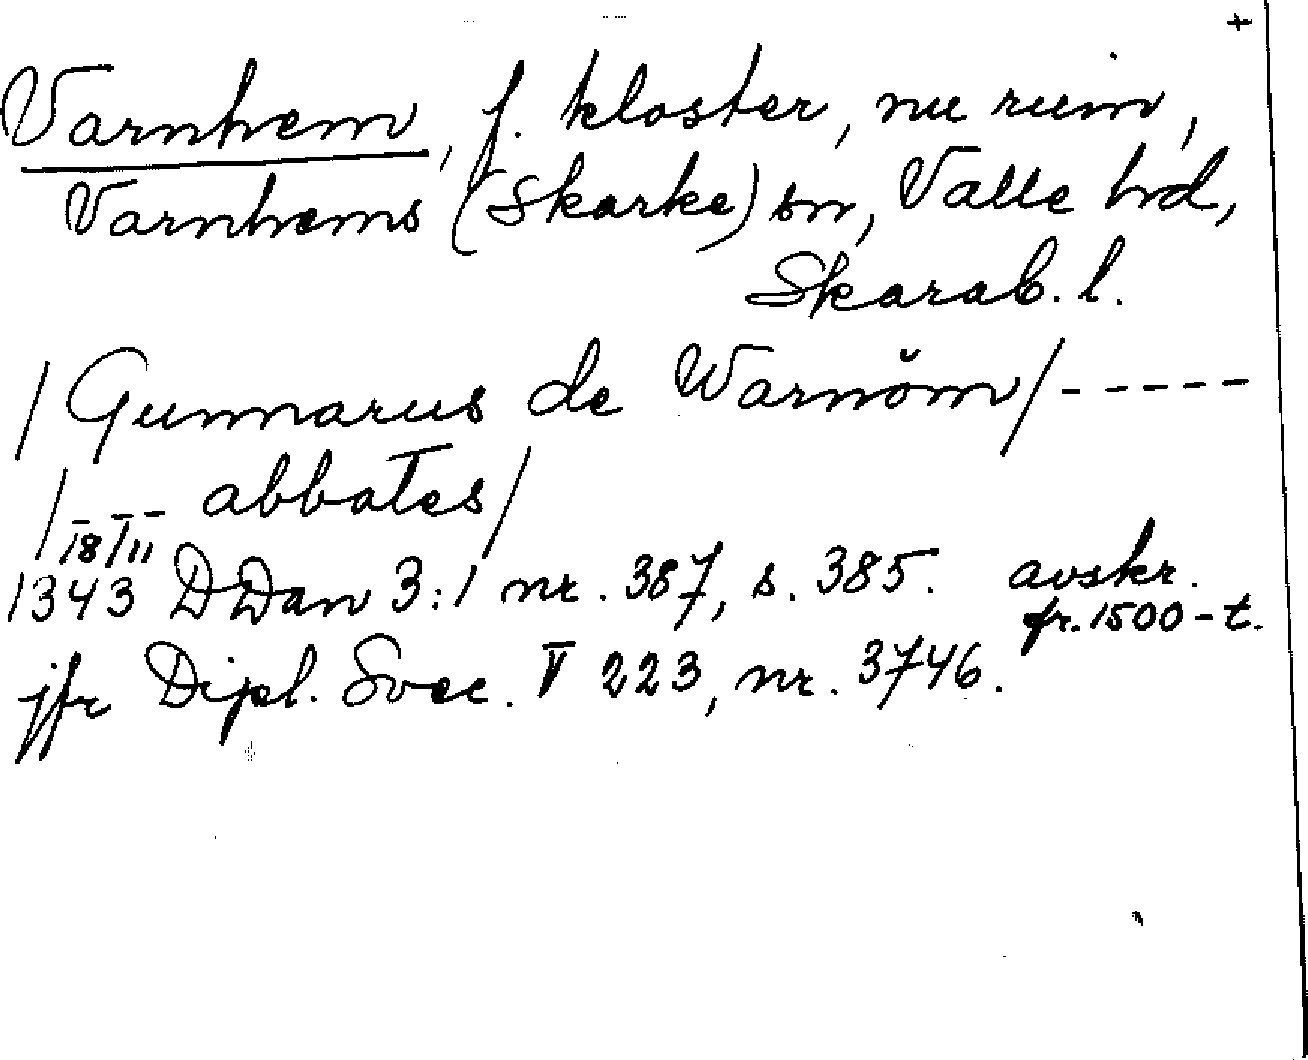 +
Varnhem, f. kloster, nu ruin,
Varnhems (Skarke) sn, Valle hd,
Skarab. l.
/Gunnarus de Warnŏm/-----
/--- abbates/
18/11
1343 DDan 3:1 nr. 387, s. 385. avskr.
fr. 1500-t.
jfr Dipl. Svec. V 223, nr. 3746.